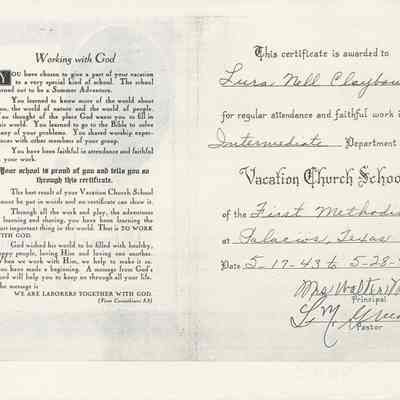 Working with God
YOU have chosen to give a part of your vacation
to a very special kind of school. The school
turned out to be a Summer Adventure.
You learned to know more of the world about
you, the world of nature and the world of people.
You thought of the place God wants you to fill in
this world. You learned to go to the Bible to solve
many of your problems. You shared worship exper-
iences with other members of your group.
You have been faithful in attendance and faithful
in your work.
Your school is proud of you and tells you so
through this certificate.
The best result of your Vacation Church School
must be put in words and no certificate can show it.
Through all the work and play, the adventures
in learning and sharing, you have been learning the
most important thing in the world. That is TO WORK
WITH GOD.
God wished his world to be filled with healthy,
happy people, loving Him and loving one another.
When we work with Him, we help to make it so.
You have made a beginning. A message from God's
word will help you to keep on through all your life.
The message is
WE ARE LABORERS TOGETHER WITH GOD.
(First Corinthians 3:9)
This certificate is awarded to
Lura Nell
for regular attendance and faithful work i
Intermediate Department
Vacation Church Schoo
of the First Methodis
at Palacios, Texas
Date 5-17-43 to 5-28-4
Mrs. Walter
Principal
L.M.
Pastor